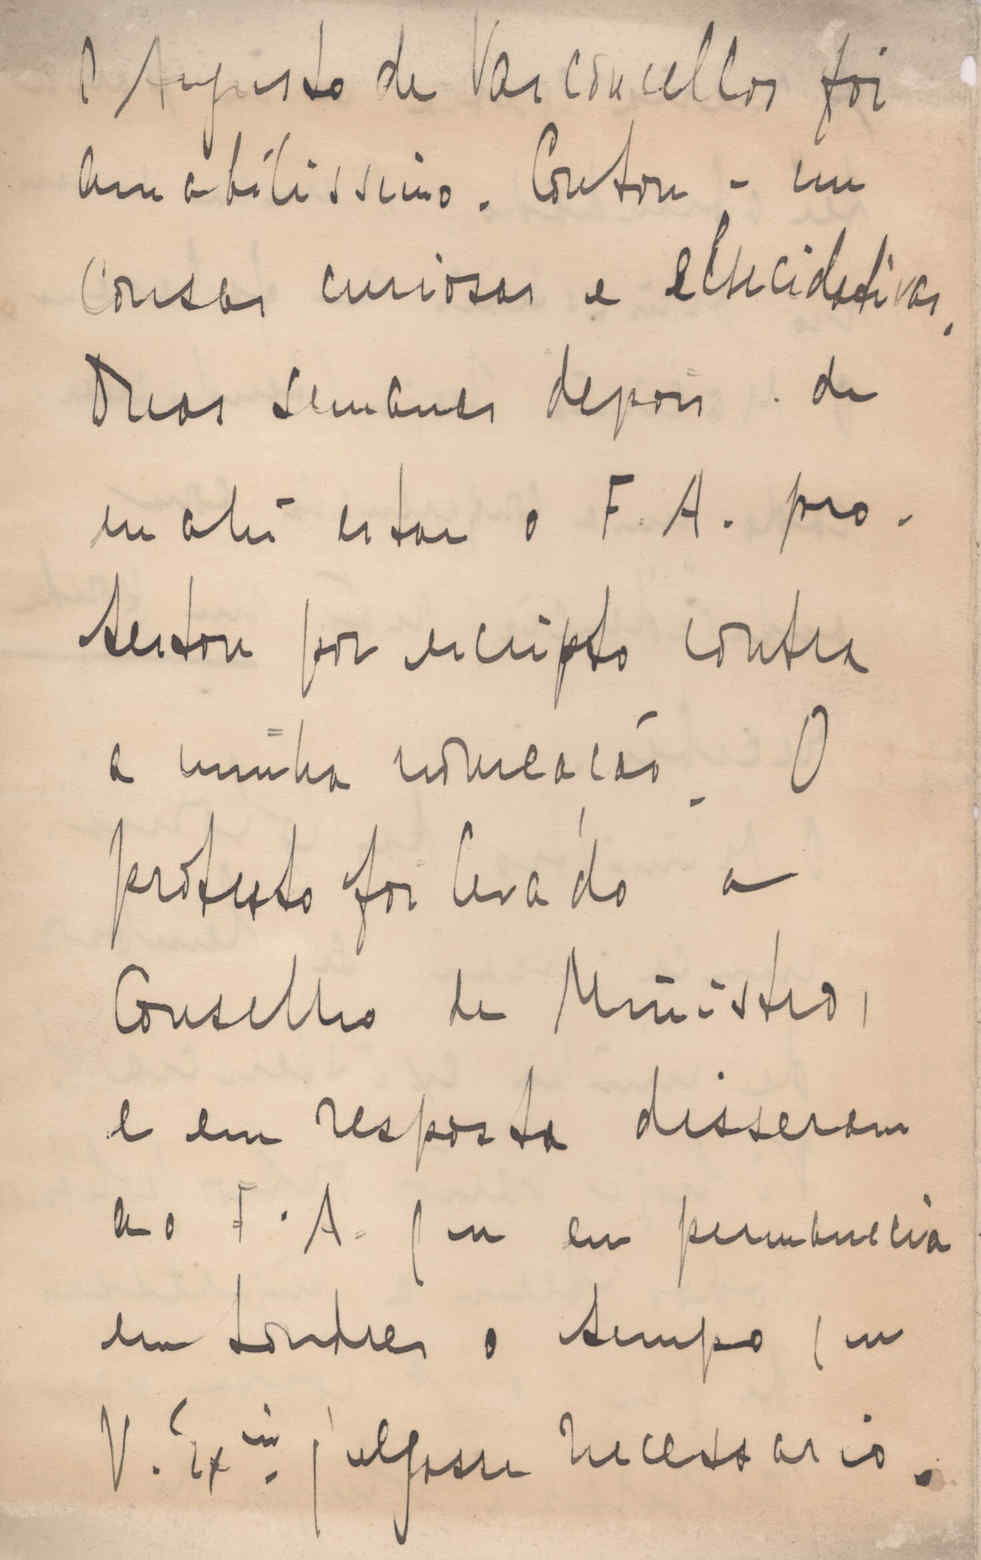 O Augusto de Vasconcellos foi
amabilissimo. Contou-me
cousas curiosas e elucidativas.
Duas semanas depois de
eu ahi estar o F. A. pro-
testou por escripto contra
a minha nomeação. O
protesto foi levado a
Conselho de Ministros,
e em resposta disseram
ao F. A. que eu permanecia
em Londres o tempo que
V. Ex.cia julgasse necessario.